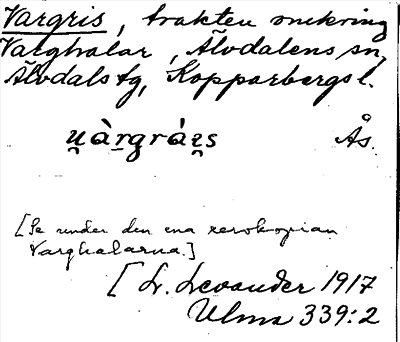 Vargris, trakten omkring
Varghalar, Älvdalens sn,
Älvdals tg, Kopparbergs l.
u̯àrgrái̯s Ås.
[Se under den ena xerokopian
Varghalarna.]
[L. Levander 1917
Ulma 339:2